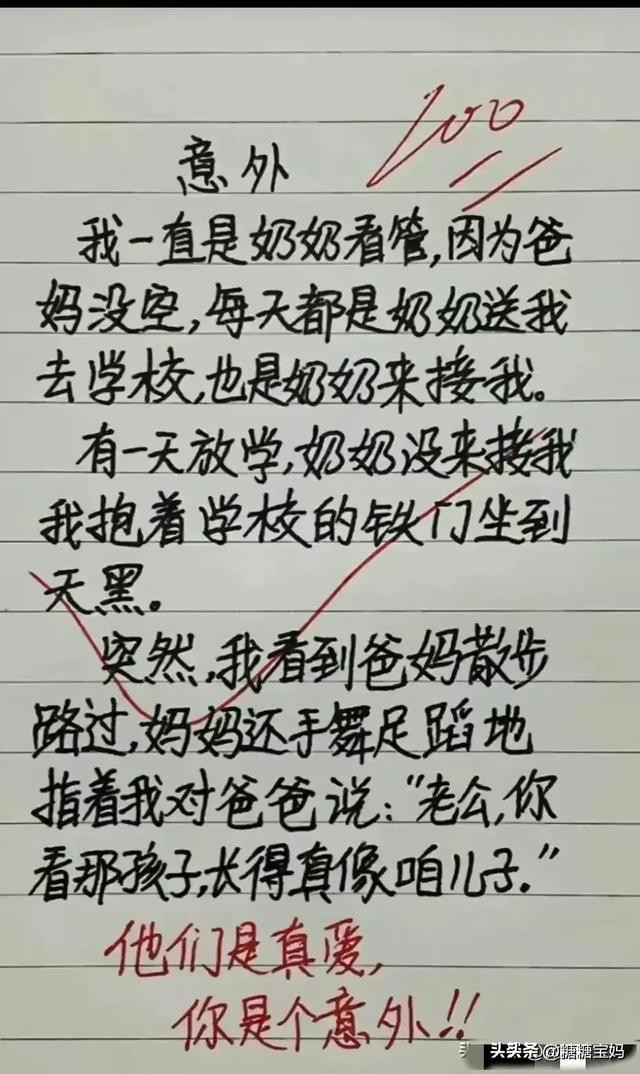 100
意外
我一直是奶奶看管,因为爸
妈没空,每天都是奶奶送我
去学校,也是奶奶来接我。
有一天放学,奶奶没来接我
我抱着学校的铁门坐到
天黑。
突然,我看到爸妈散步
路过,妈妈还手舞足蹈地
指着我对爸爸说:“老公,你
看那孩子,长得真像咱儿子。”
他们是真爱,
你是个意外!!
头条 @糖糖宝妈